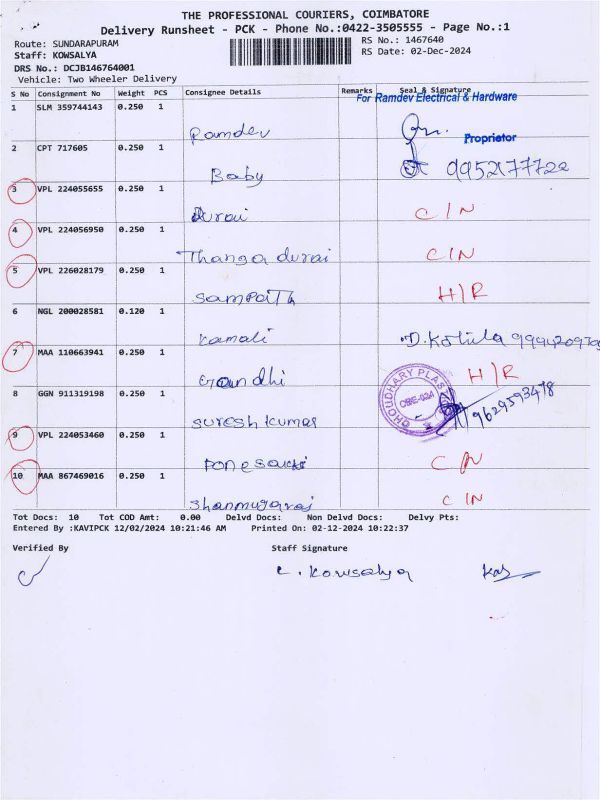 THE PROFESSIONAL COURIERS, COIMBATORE
Delivery Runsheet - PCK - Phone No.:0422-3505555 - Page No.:1
Route: SUNDARAPURAM
RS No.: 1467640
Staff: KOWSALYA
RS Date: 02-Dec-2024
DRS No.: DCJB146764001
Vehicle: Two Wheeler Delivery
S No Consignment No Weight PCS Consignee Details Remarks Seal & Signature
For Ramdev Electrical & Hardware
1 SLM 359744143 0.250 1
Ramdev
Proprietor
2 CPT 717605 0.250 1
Baby 9952177722
3 VPL 224055655 0.250 1
Durai C/N
4 VPL 224056950 0.250 1
Thanga durai C/N
5 VPL 226028179 0.250 1
Sampath H/R
6 NGL 200028581 0.120 1
Kamali
7 MAA 110663941 0.250 1
H/R
CHOUDHARY PLAS
CBE-024
8 GGN 911319198 0.250 1
Suresh kumar 9629593478
9 VPL 224053460 0.250 1
C N
10 MAA 867469016 0.250 1
Shanmugaraj C/N
Tot Docs: 10 Tot COD Amt: 0.00 Delvd Docs: Non Delvd Docs: Delvy Pts:
Entered By :KAVIPCK 12/02/2024 10:21:46 AM Printed On: 02-12-2024 10:22:37
Verified By Staff Signature
C. Kowsalya